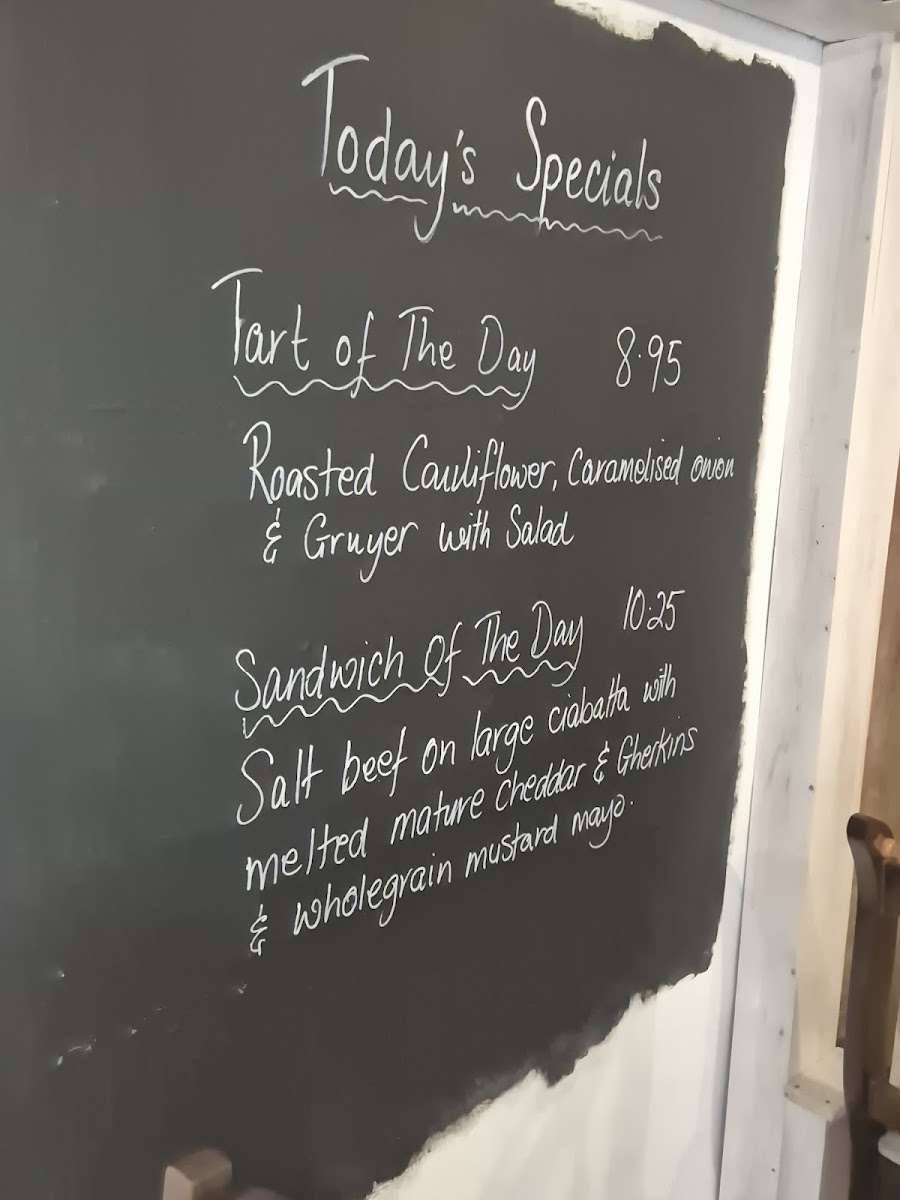 Today's Specials
Tart of The Day 8.95
Roasted Cauliflower, Caramelised onion
& Gruyer with Salad
Sandwich Of The Day 10.25
Salt beef on large ciabatta with
melted mature Cheddar & Gherkins
& wholegrain mustard mayo.